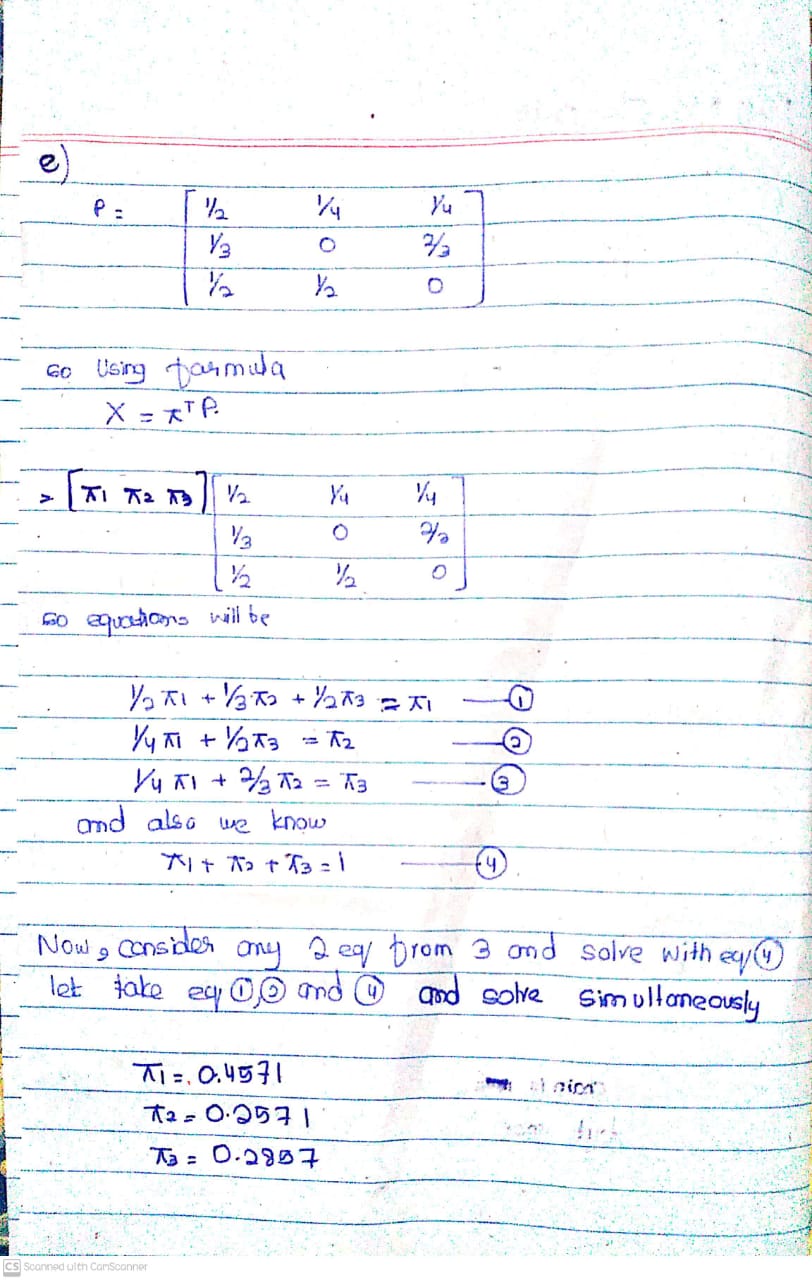 e)
P = [ 1/2 1/4 1/4
1/3 0 2/3
1/2 1/2 0 ]
so Using formula
X = πᵀ P.
> [π1 π2 π3] [ 1/2 1/4 1/4
1/3 0 2/3
1/2 1/2 0 ]
so equations will be
1/2 π1 + 1/3 π2 + 1/2 π3 = π1 —— ①
1/4 π1 + 1/2 π3 = π2 —— ②
1/4 π1 + 2/3 π2 = π3 —— ③
and also we know
π1 + π2 + π3 = 1 —— ④
Now, consider any 2 eq from 3 and solve with eq ④
let take eq ①,② and ④ and solve simultaneously
π1 = 0.4571
π2 = 0.2571
π3 = 0.2857
CS Scanned with CamScanner